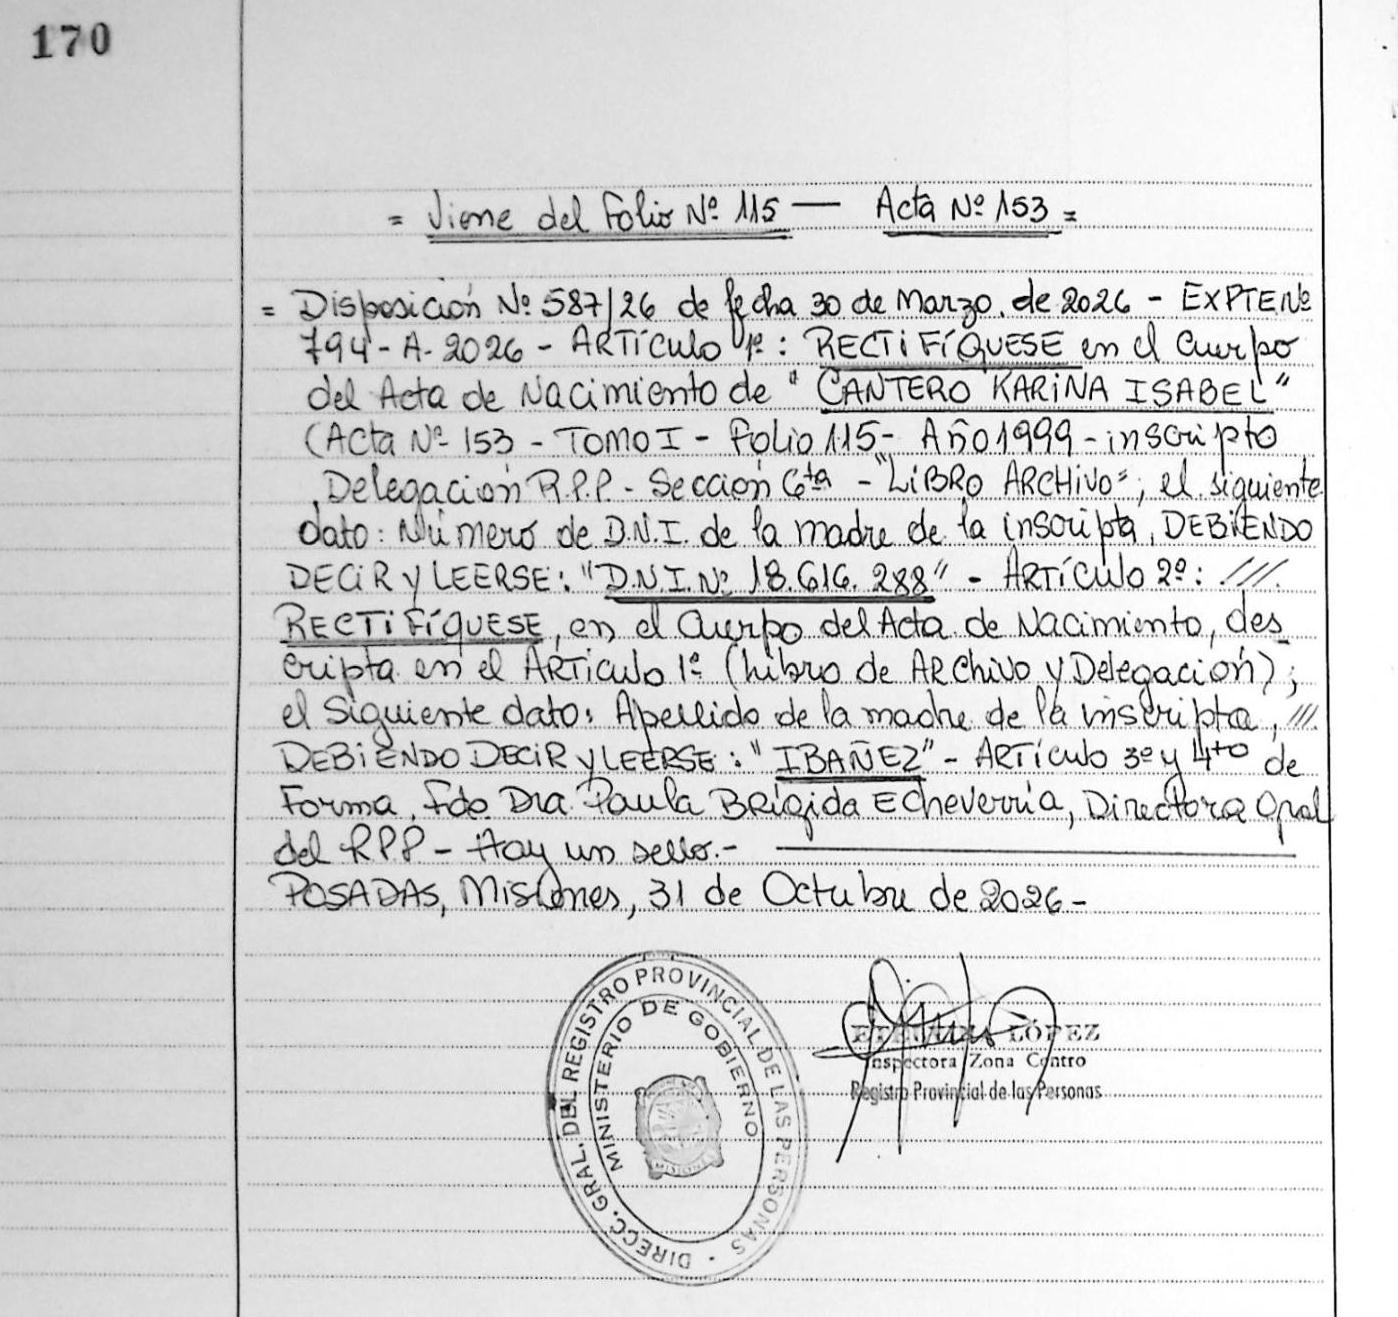 170
= Viene del Folio Nº 115 — Acta Nº 153 =
= Disposición Nº 587/26 de fecha 30 de Marzo de 2026 - EXPTE Nº
794-A-2026 - ARTÍCULO 1º: RECTIFÍQUESE en el Cuerpo
del Acta de Nacimiento de "CANTERO KARINA ISABEL"
(Acta Nº 153 - TOMO I - Folio 115 - Año 1999 - inscripto
Delegación R.P.P. - Sección 6ta - "LIBRO ARCHIVO"; el siguiente
dato: Número de D.N.I. de la madre de la inscripta, DEBIENDO
DECIR y LEERSE: "D.N.I. Nº 18.616.288" - ARTÍCULO 2º: ///.
RECTIFÍQUESE, en el Cuerpo del Acta de Nacimiento, des
cripta en el ARTÍCULO 1º (Libro de ARchivo y Delegación);
el Siguiente dato: Apellido de la madre de la inscripta, ///.
DEBIENDO DECIR y LEERSE: "IBAÑEZ" - ARTÍCULO 3º y 4to de
Forma. Fdo Dra. Paula BRígida Echeverría, Directora Gral
del RPP - Hay un sello.-
POSADAS, Misiones, 31 de Octubre de 2026-
DIRECC. GRAL. DEL REGISTRO PROVINCIAL DE LAS PERSONAS
MINISTERIO DE GOBIERNO
MISIONES
LÓPEZ
Inspectora Zona Centro
Registro Provincial de las Personas